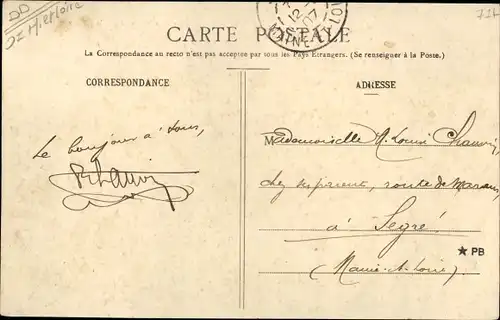 CARTE POSTALE
La Correspondance au recto n'est pas acceptée par tous les Pays Etrangers. (Se renseigner à la Poste.)
CORRESPONDANCE
Le bonjour à tous,
ADRESSE
Mademoiselle M. Louise Chauvin,
route de
à Segré
(Maine-et-Loire).
★ PB